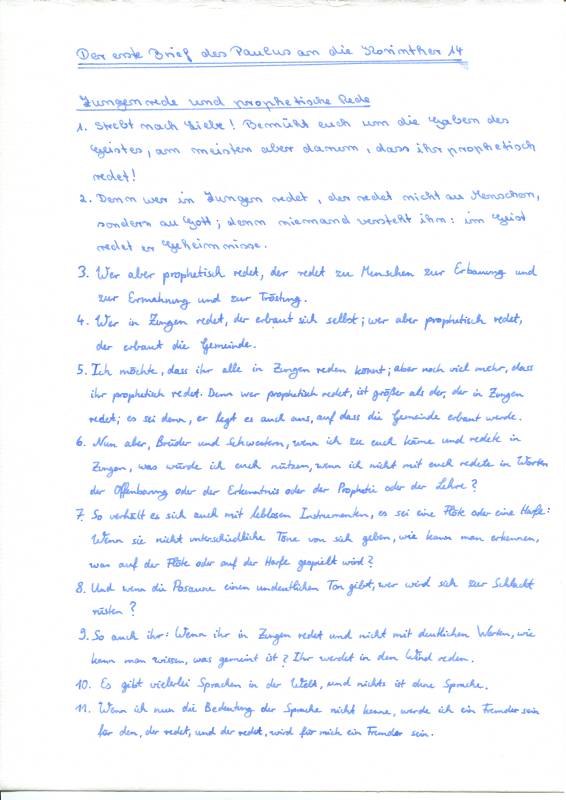 Der erste Brief des Paulus an die Korinther 14
Zungenrede und prophetische Rede
1. Strebt nach Liebe! Bemüht euch um die Gaben des
Geistes, am meisten aber darum, dass ihr prophetisch
redet!
2. Denn wer in Zungen redet, der redet nicht zu Menschen,
sondern zu Gott; denn niemand versteht ihn: im Geist
redet er Geheimnisse.
3. Wer aber prophetisch redet, der redet zu Menschen zur Erbauung und
zur Ermahnung und zur Tröstung.
4. Wer in Zungen redet, der erbaut sich selbst; wer aber prophetisch redet,
der erbaut die Gemeinde.
5. Ich möchte, dass ihr alle in Zungen reden könnt; aber noch viel mehr, dass
ihr prophetisch redet. Denn wer prophetisch redet, ist größer als der, der in Zungen
redet; es sei denn, er legt es auch aus, auf dass die Gemeinde erbaut werde.
6. Nun aber, Brüder und Schwestern, wenn ich zu euch käme und redete in
Zungen, was würde ich euch nützen, wenn ich nicht mit euch redete in Worten
der Offenbarung oder der Erkenntnis oder der Prophetie oder der Lehre?
7. So verhält es sich auch mit leblosen Instrumenten, es sei eine Flöte oder eine Harfe:
Wenn sie nicht unterschiedliche Töne von sich geben, wie kann man erkennen,
was auf der Flöte oder auf der Harfe gespielt wird?
8. Und wenn die Posaune einen undeutlichen Ton gibt, wer wird sich zur Schlacht
rüsten?
9. So auch ihr: Wenn ihr in Zungen redet und nicht mit deutlichen Worten, wie
kann man wissen, was gemeint ist? Ihr werdet in den Wind reden.
10. Es gibt vielerlei Sprachen in der Welt, und nichts ist ohne Sprache.
11. Wenn ich nun die Bedeutung der Sprache nicht kenne, werde ich ein Fremder sein
für den, der redet, und der redet, wird für mich ein Fremder sein.